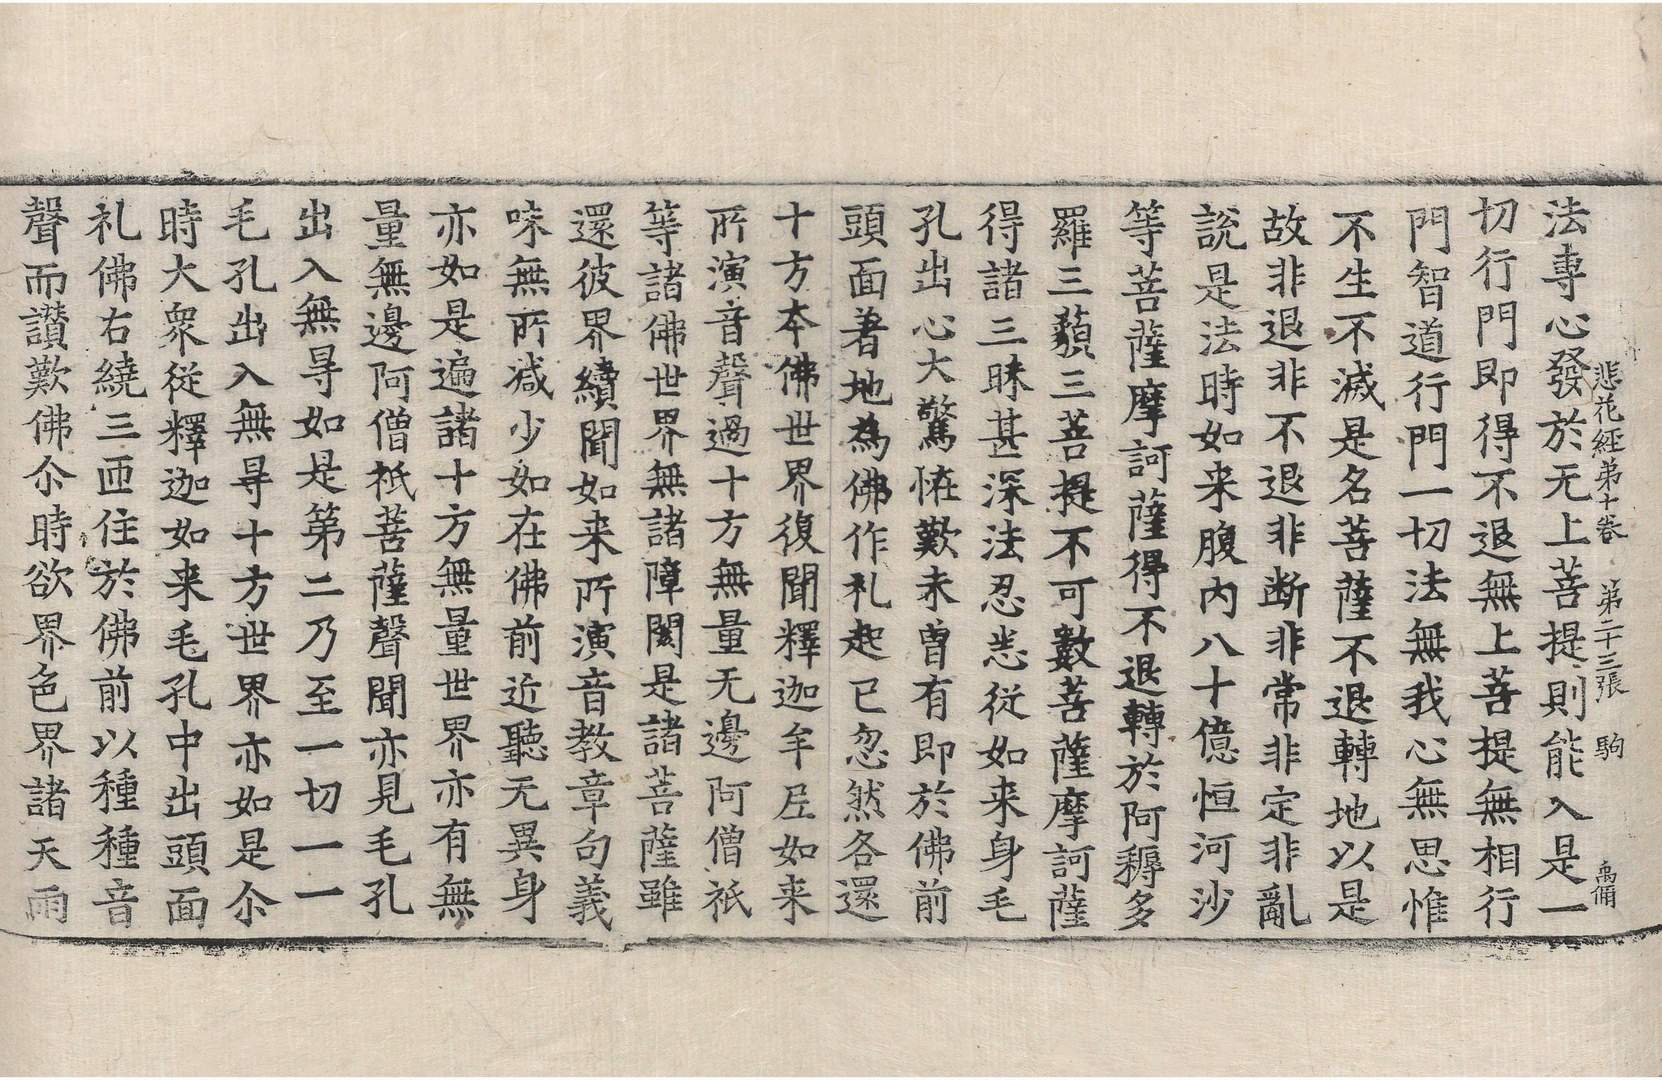 悲花經第十卷　第二十三張　駒　禹俑
法專心發於无上菩提則能入是一
切行門即得不退無上菩提無相行
門智道行門一切法無我心無思惟
不生不滅是名菩薩不退轉地以是
故非退非不退非断非常非定非亂
說是法時如来腹内八十億恒河沙
等菩薩摩訶薩得不退轉於阿耨多
羅三藐三菩提不可數菩薩摩訶薩
得諸三昧甚深法忍悉從如来身毛
孔出心大驚恠歎未曾有即於佛前
頭面著地為佛作礼起已忽然各還
十方本佛世界復聞釋迦牟尼如来
所演音聲過十方無量无邊阿僧祇
等諸佛世界無諸障閡是諸菩薩雖
還彼界續聞如来所演音教章句義
味無所减少如在佛前近聽无異身
亦如是遍諸十方無量世界亦有無
量無邊阿僧祇菩薩聲聞亦見毛孔
出入無㝵如是第二乃至一切一一
毛孔出入無㝵十方世界亦如是尒
時大衆從釋迦如来毛孔中出頭面
礼佛右繞三匝住於佛前以種種音
聲而讃歎佛尒時欲界色界諸天雨